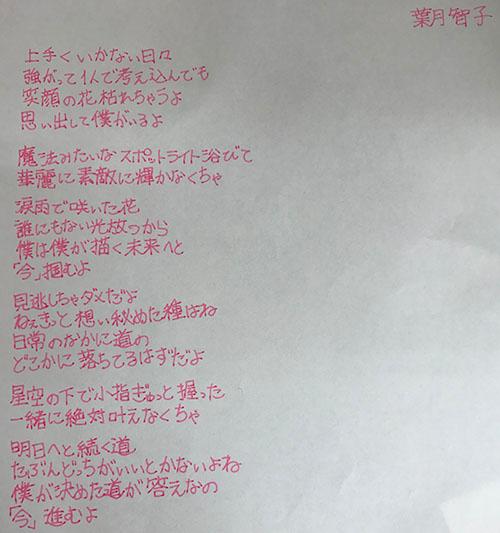 葉月智子
上手くいかない日々
強がって1人で考え込んでも
笑顔の花枯れちゃうよ
思い出して僕がいるよ
魔法みたいなスポットライト浴びて
華麗に素敵に輝かなくちゃ
涙雨で咲いた花
誰にもない光放つから
僕は僕が描く未来へと
「今」掴むよ
見逃しちゃダメだよ
ねぇきっと想い秘めた種はね
日常のなかに道の
どこかに落ちてるはずだよ
星空の下で小指ぎゅっと握った
一緒に絶対叶えなくちゃ
明日へと続く道
たぶんどっちがいいとかないよね
僕が決めた道が答えなの
「今」進むよ